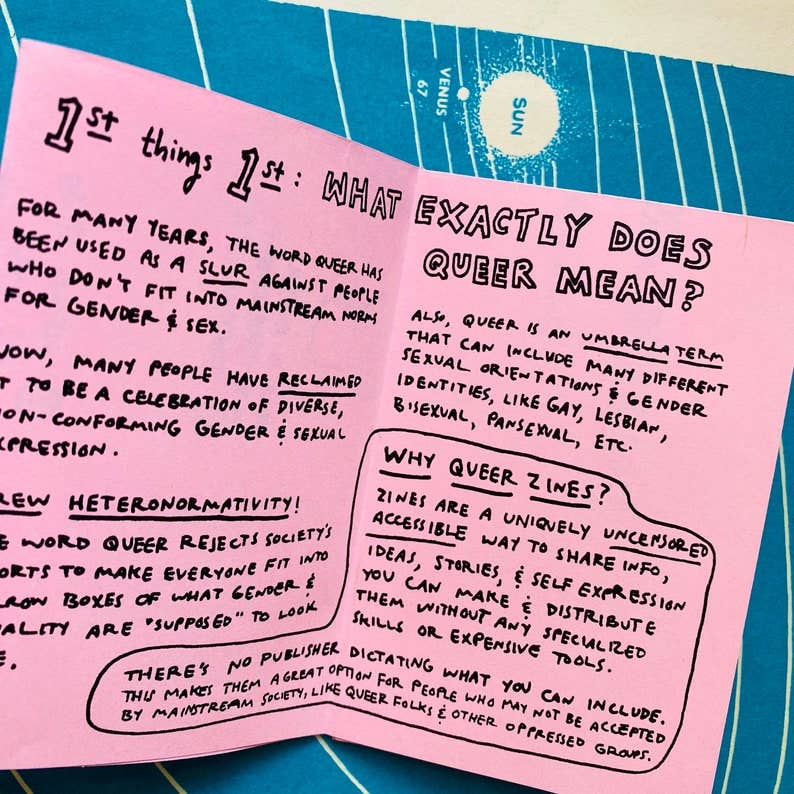 SUN
VENUS
67
1st things 1st: WHAT EXACTLY DOES
QUEER MEAN?
FOR MANY YEARS, THE WORD QUEER HAS
BEEN USED AS A SLUR AGAINST PEOPLE
WHO DON'T FIT INTO MAINSTREAM NORMS
FOR GENDER & SEX.
NOW, MANY PEOPLE HAVE RECLAIMED
TO BE A CELEBRATION OF DIVERSE,
NON-CONFORMING GENDER & SEXUAL
EXPRESSION.
HETERONORMATIVITY!
WORD QUEER REJECTS SOCIETY'S
TO MAKE EVERYONE FIT INTO
BOXES OF WHAT GENDER &
ARE "SUPPOSED" TO LOOK
ALSO, QUEER IS AN UMBRELLA TERM
THAT CAN INCLUDE MANY DIFFERENT
SEXUAL ORIENTATIONS & GENDER
IDENTITIES, LIKE GAY, LESBIAN,
BISEXUAL, PANSEXUAL, ETC.
WHY QUEER ZINES?
ZINES ARE A UNIQUELY UNCENSORED
ACCESSIBLE WAY TO SHARE INFO,
IDEAS, STORIES, & SELF EXPRESSION
YOU CAN MAKE & DISTRIBUTE
THEM WITHOUT ANY SPECIALIZED
SKILLS OR EXPENSIVE TOOLS.
THERE'S NO PUBLISHER DICTATING WHAT YOU CAN INCLUDE.
THIS MAKES THEM A GREAT OPTION FOR PEOPLE WHO MAY NOT BE ACCEPTED
BY MAINSTREAM SOCIETY, LIKE QUEER FOLKS & OTHER OPPRESSED GROUPS.